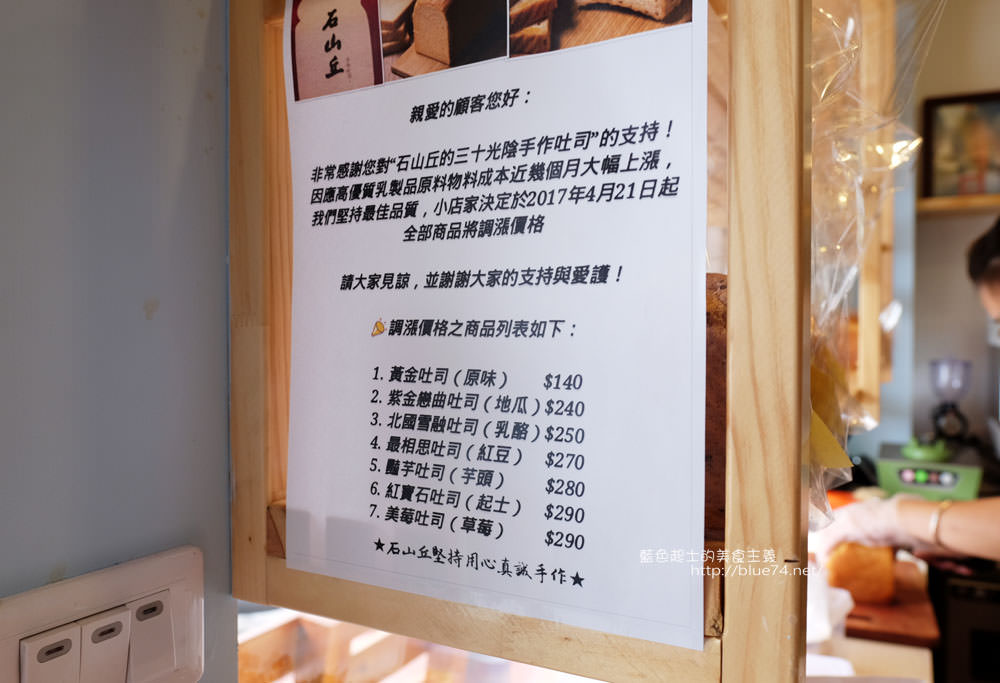 石山丘
親愛的顧客您好：
非常感謝您對“石山丘的三十光陰手作吐司”的支持！
因應高優質乳製品原料物料成本近幾個月大幅上漲，
我們堅持最佳品質，小店家決定於2017年4月21日起
全部商品將調漲價格
請大家見諒，並謝謝大家的支持與愛護！
調漲價格之商品列表如下：
1. 黃金吐司（原味） $140
2. 紫金戀曲吐司（地瓜）$240
3. 北國雪融吐司（乳酪）$250
4. 最相思吐司（紅豆） $270
5. 豔芋吐司（芋頭） $280
6. 紅寶石吐司（起士） $290
7. 美莓吐司（草莓） $290
★石山丘堅持用心真誠手作★
藍色起士的美食主義
http://blue74.net/